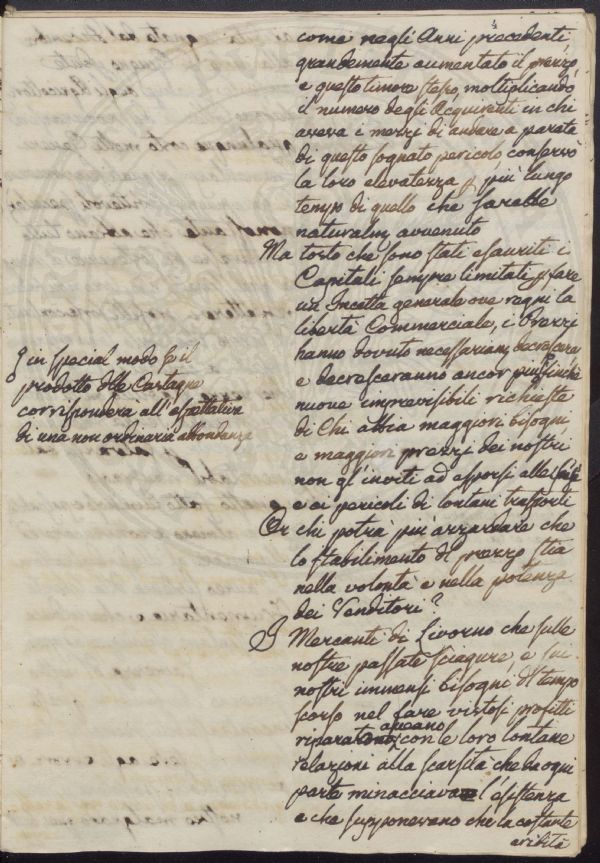 come negli Anni precedenti
grandemente aumentato il prezzo,
e questo timore stesso, moltiplicando
il numero degli Acquirenti in chi
aveva i mezzi di andare a parata
di questo sognato pericolo, conservò
la loro elevatezza p più lungo
tempo di quello che sarebbe
naturalm avvenuto
Ma tosto che sono stati esauriti i
Capitali sempre limitati p fare
un Incetta generale ove regni la
libertà Commerciale, i Prezzi
hanno dovuto necessariam decrescere
e decresceranno ancor più finchè
nuove imprevisibili richieste
di Chi abbia maggiori bisogni,
e maggiori prezzi dei nostri
non gl'inviti ad esporsi alle
e ai pericoli di lontani trasporti
Or chi potrà più azzardare che
lo stabilimento di prezzo stia
nella volontà e nella potenza
dei Venditori?
I Mercanti di Livorno che sulle
nostre passate sciagure, e sui
nostri immensi bisogni del tempo
scorso nel fare vistosi profitti
aveano
riparato con le loro lontane
relazioni alla scarsità che da ogni
parte minacciava l'esistenza
e che supponevano che la costante
aridità
in special modo se il
prodotto delle Castagne
corrisponderà all'aspettativa
di una non ordinaria abbondanza